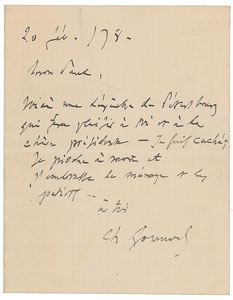 20 fév. 78.
mon Paul,
Voici une dépêche de Pétersbourg
qui fera plaisir à toi et à la
chère présidente — Je suis caché,
Je pioche à mort et
j'embrasse le ménage et les
petiots —
à toi
Ch. Gounod